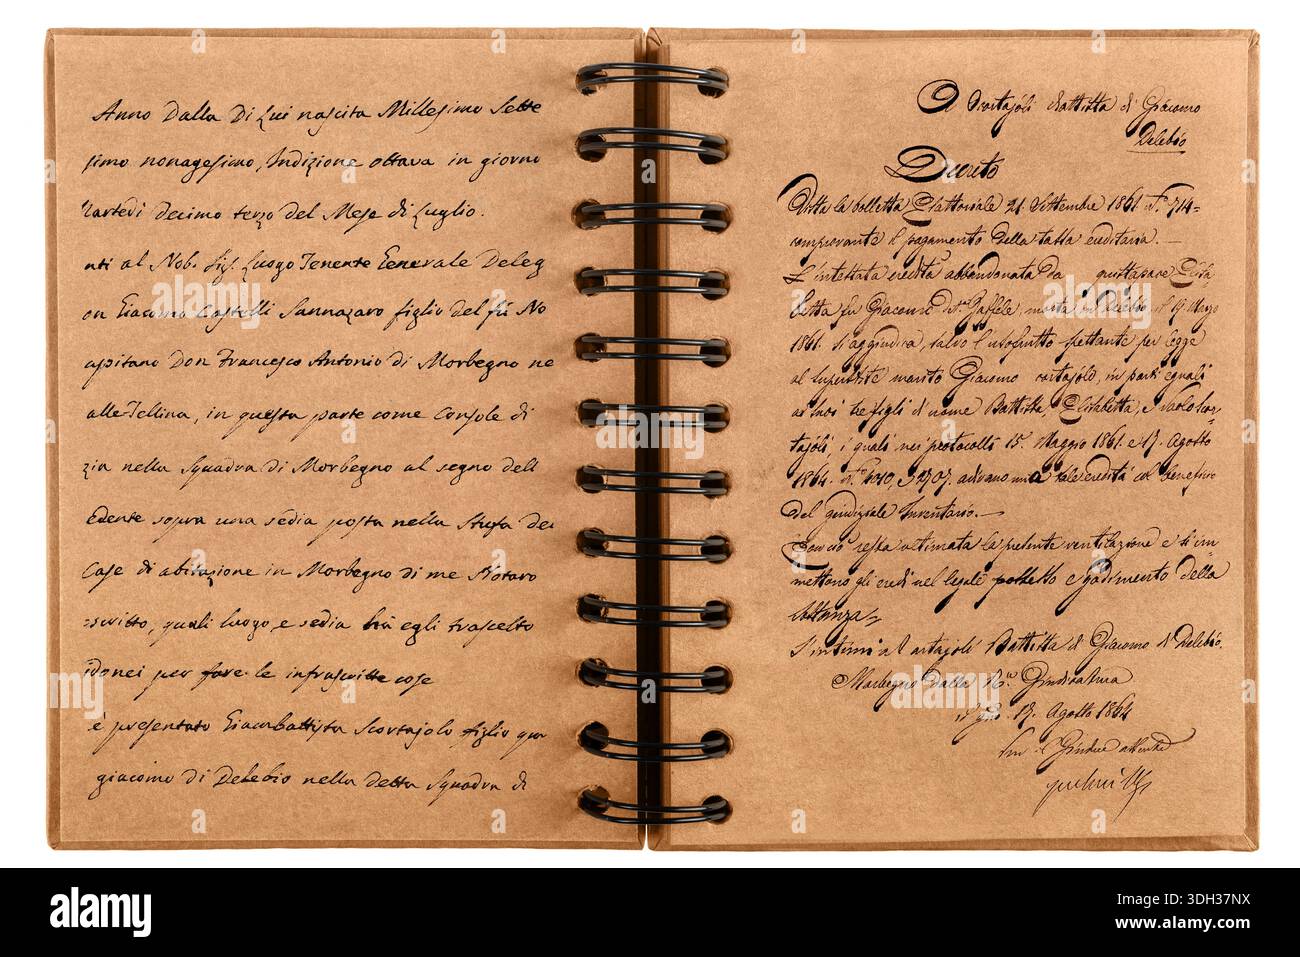 Anno Dalla Di Lui nascita Millesimo Sette
simo nonagesimo, Indizione ottava in giorno
Martedi decimo terzo del Mese di Luglio.
nti al Nob. Sig. Luogo Tenente Generale Deleg
on Giacomo Castelli Sannazaro figlio del fù No
apitano Don Francesco Antonio di Morbegno ne
alle Tellina, in questa parte come Console di
zia nella Squadra di Morbegno al segno dell
edente sopra una sedia posta nella Stufa del
Case di abitazione in Morbegno di me Notaro
scritto, quali luogo, e sedia hà egli trascelto
idonei per fare le infrascritte cose
è presentato Giambattista Scortajolo figlio qm
giacomo di Delebio nella detta Squadra di
A Scartajoli Battista di Giacomo
Delebio
Decreto
Vista la bolletta Esattoriale 21. Settembre 1861 N.° 714=
comprovante il pagamento della tassa ereditaria.—
L'intestata eredità abbandonata da Elisa
betta fu Giacomo morta in Delebio il 19. Marzo
1861. si aggiudica, salvo l'usofrutto spettante per legge
al superstite marito Giacomo in parti eguali
ai suoi tre figli di nome Battista, Elisabetta, e
tajoli, i quali nei protocolli 15. Maggio 1861. e 17. Agosto
1864. N.° 2707. adivano una tale eredità col beneficio
del giudiziale Inventario.—
Con ciò resta ultimata la presente ventilazione e si im
mettono gli eredi nel legale possesso e godimento della
sostanza=
S'intimi a Scartajoli Battista di Giacomo di Delebio.
Morbegno dalla R. Giudicatura
Agosto 1864
Giudice
alamy
Image ID: 3DH37NX
www.alamy.com